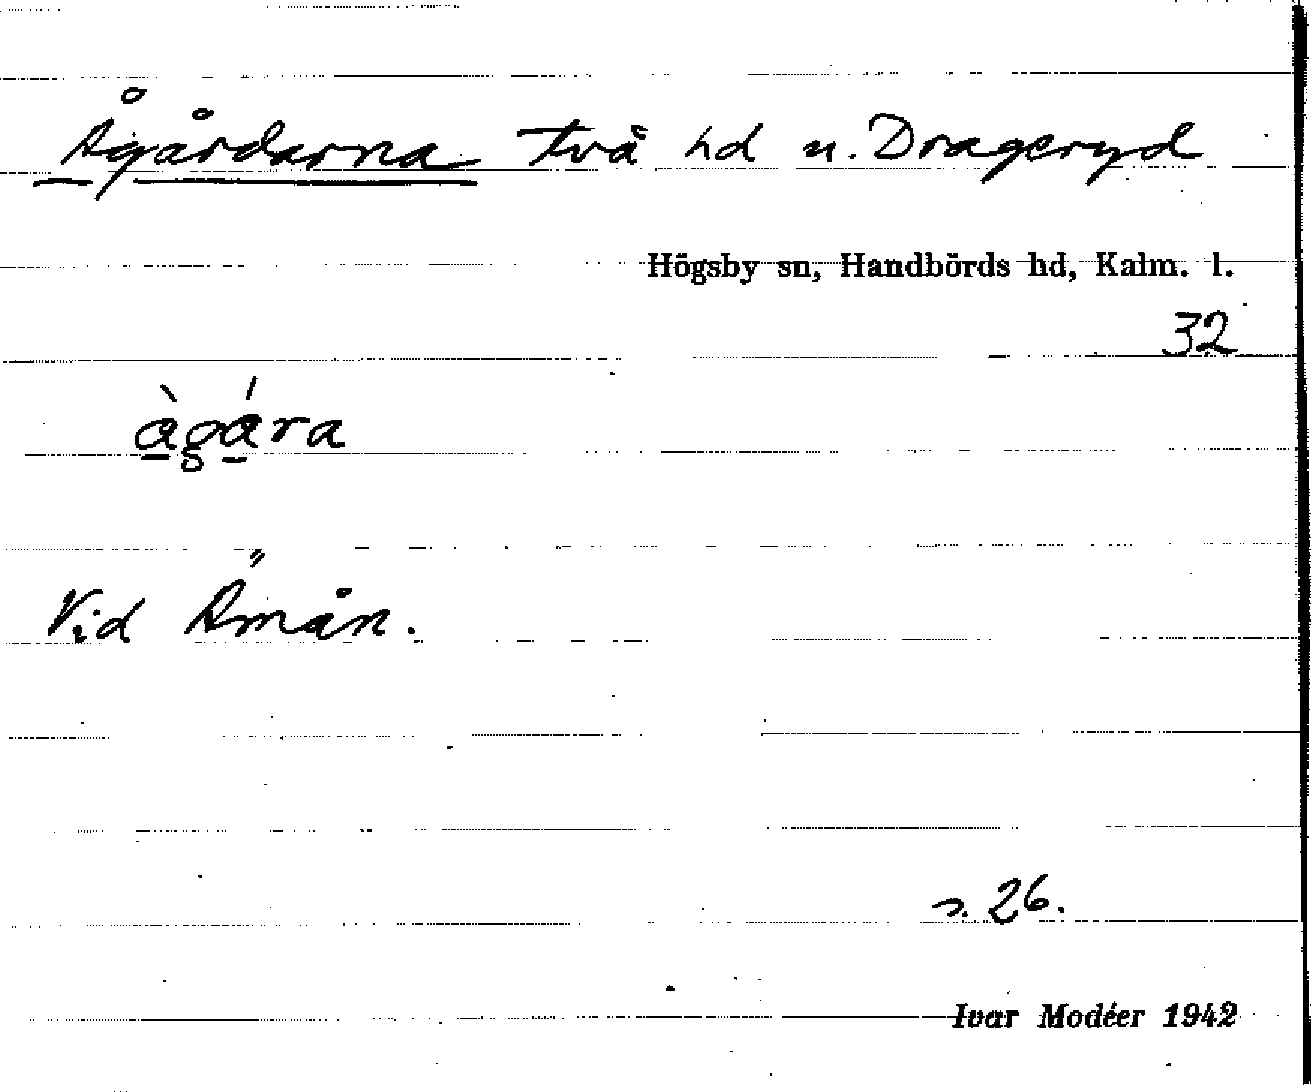 Ågårdarna två hd u. Drageryd
Högsby sn, Handbörds hd, Kalm. l.
32
å̱̀gǻ̱ra
Vid Ämån.
s. 26.
Ivar Modéer 1942